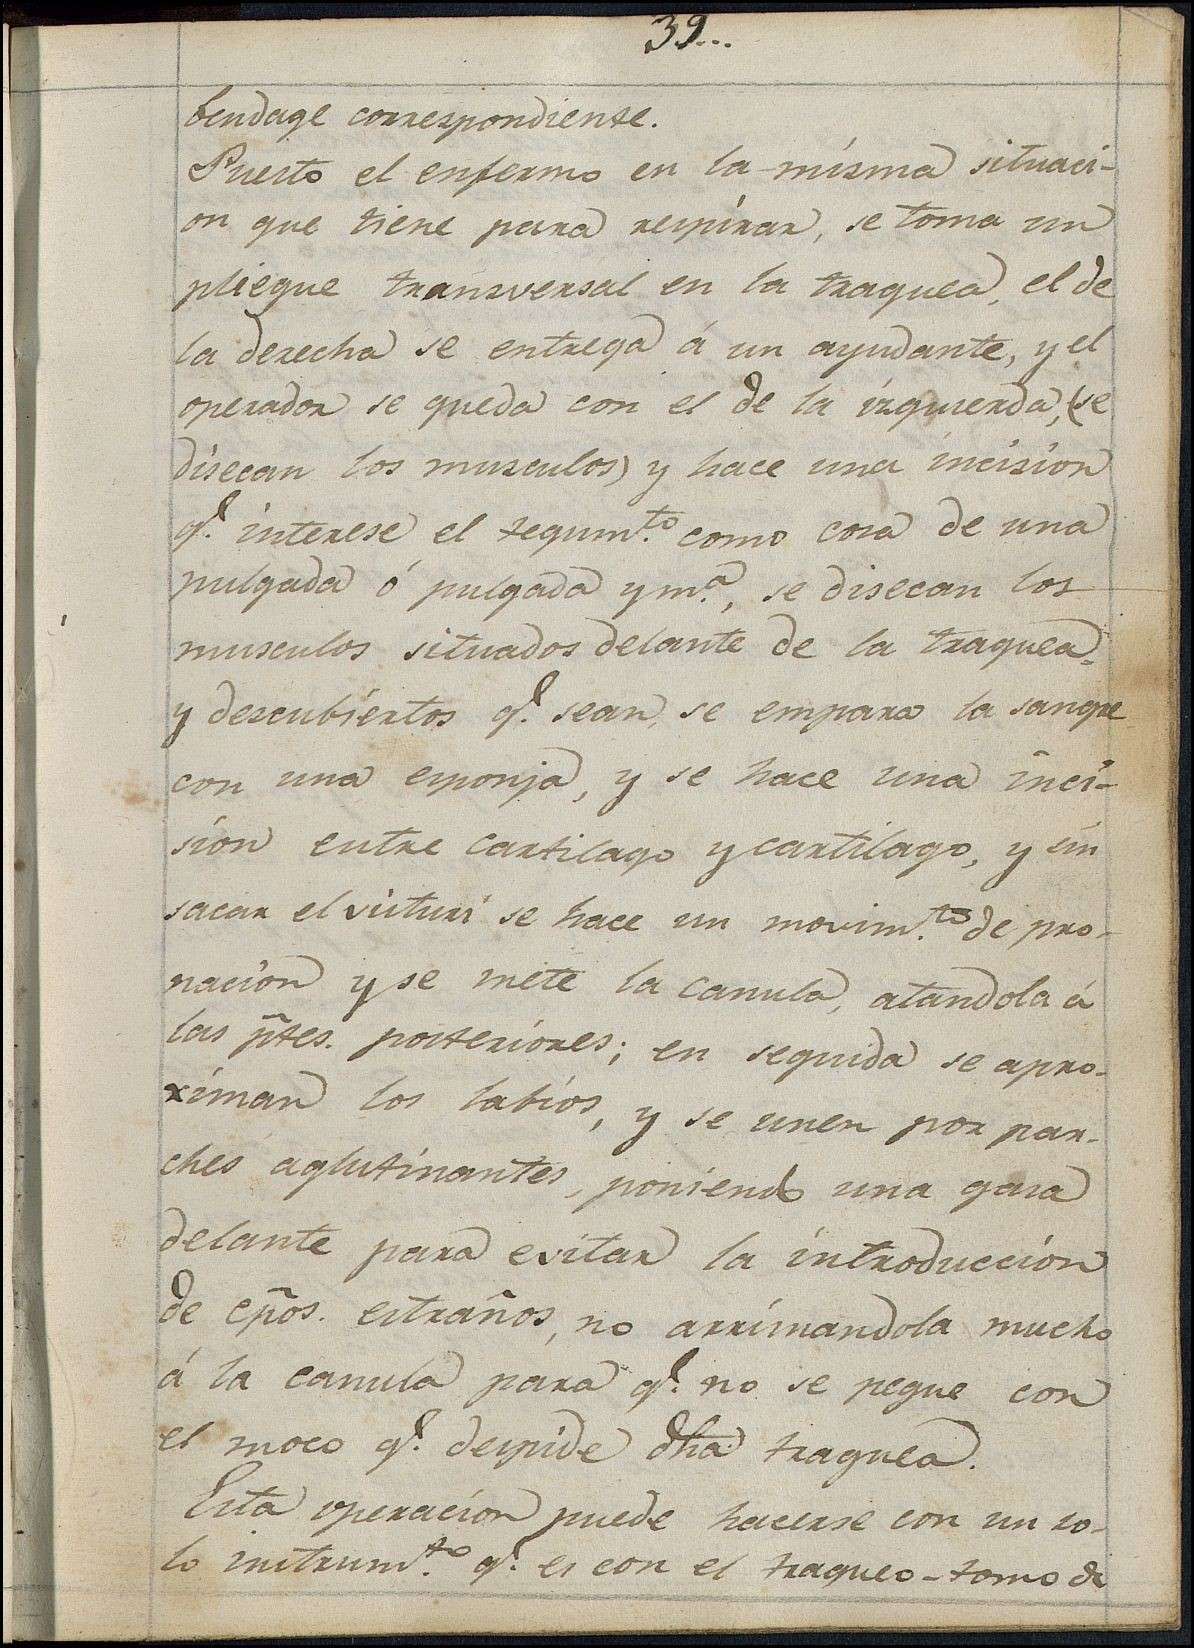 39...
bendage correspondiente.
Puesto el enfermo en la misma situaci-
on que tiene para respirar, se toma un
pliegue transversal en la traquea, el de
la derecha se entrega á un ayudante, y el
operador se queda con el de la izquierda, (se
disecan los musculos) y hace una incision
q.e interese el tegum.to como cosa de una
pulgada ó pulgada y m.a, se disecan los
musculos situados delante de la traquea,
y descubiertos q.e sean, se empapa la sangre
con una esponja, y se hace una inci-
sion entre cartilago y cartilago, y sin
sacar el visturi se hace un movim.to de pro-
nacion y se mete la canula, atandola á
las p̃tes. posteriores; en seguida se apro-
ximan los labios, y se unen por par-
ches aglutinantes, poniendo una gasa
delante para evitar la introduccion
de cp̃os. estraños, no arrimandola mucho
á la canula para q.e no se pegue con
el moco q.e despide dha traquea.
Esta operacion puede hacerse con un so-
lo instrum.to q.e es con el traqueo-tomo de